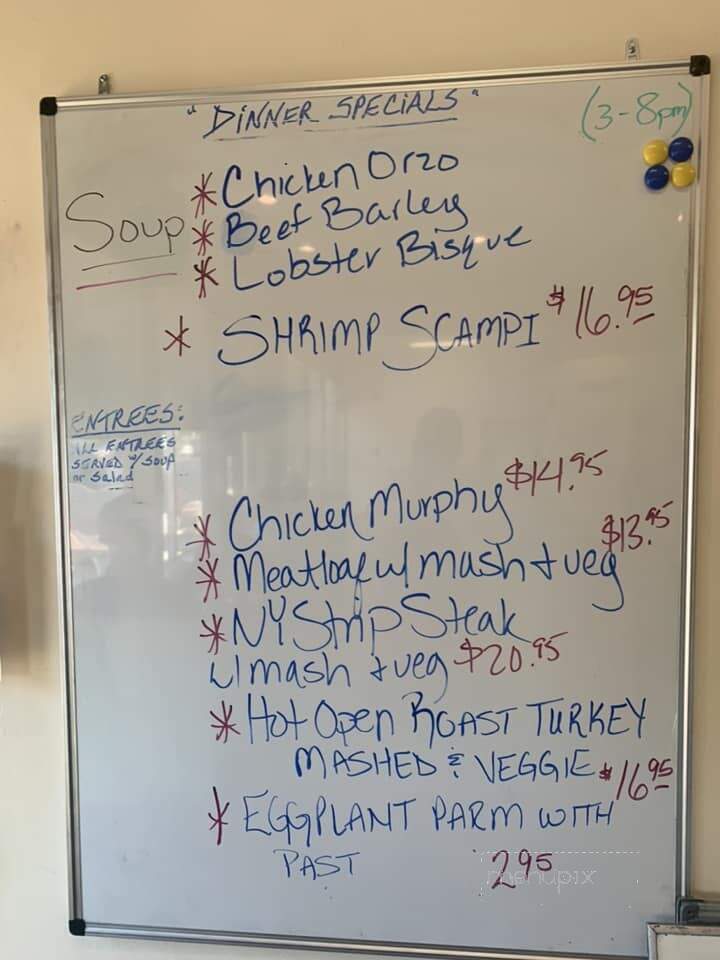 "DINNER SPECIALS"
(3-8pm)
Soup
* Chicken Orzo
* Beef Barley
* Lobster Bisque
* SHRIMP SCAMPI $16.95
ENTREES:
ALL ENTREES
SERVED w/SOUP
or Salad
* Chicken Murphy $14.95
* Meatloaf w/ mash + veg $13.95
* NY Strip Steak
w/ mash + veg $20.95
* Hot Open ROAST TURKEY
MASHED & VEGGIE $16.95
* EGGPLANT PARM WITH
PAST 295
menupix